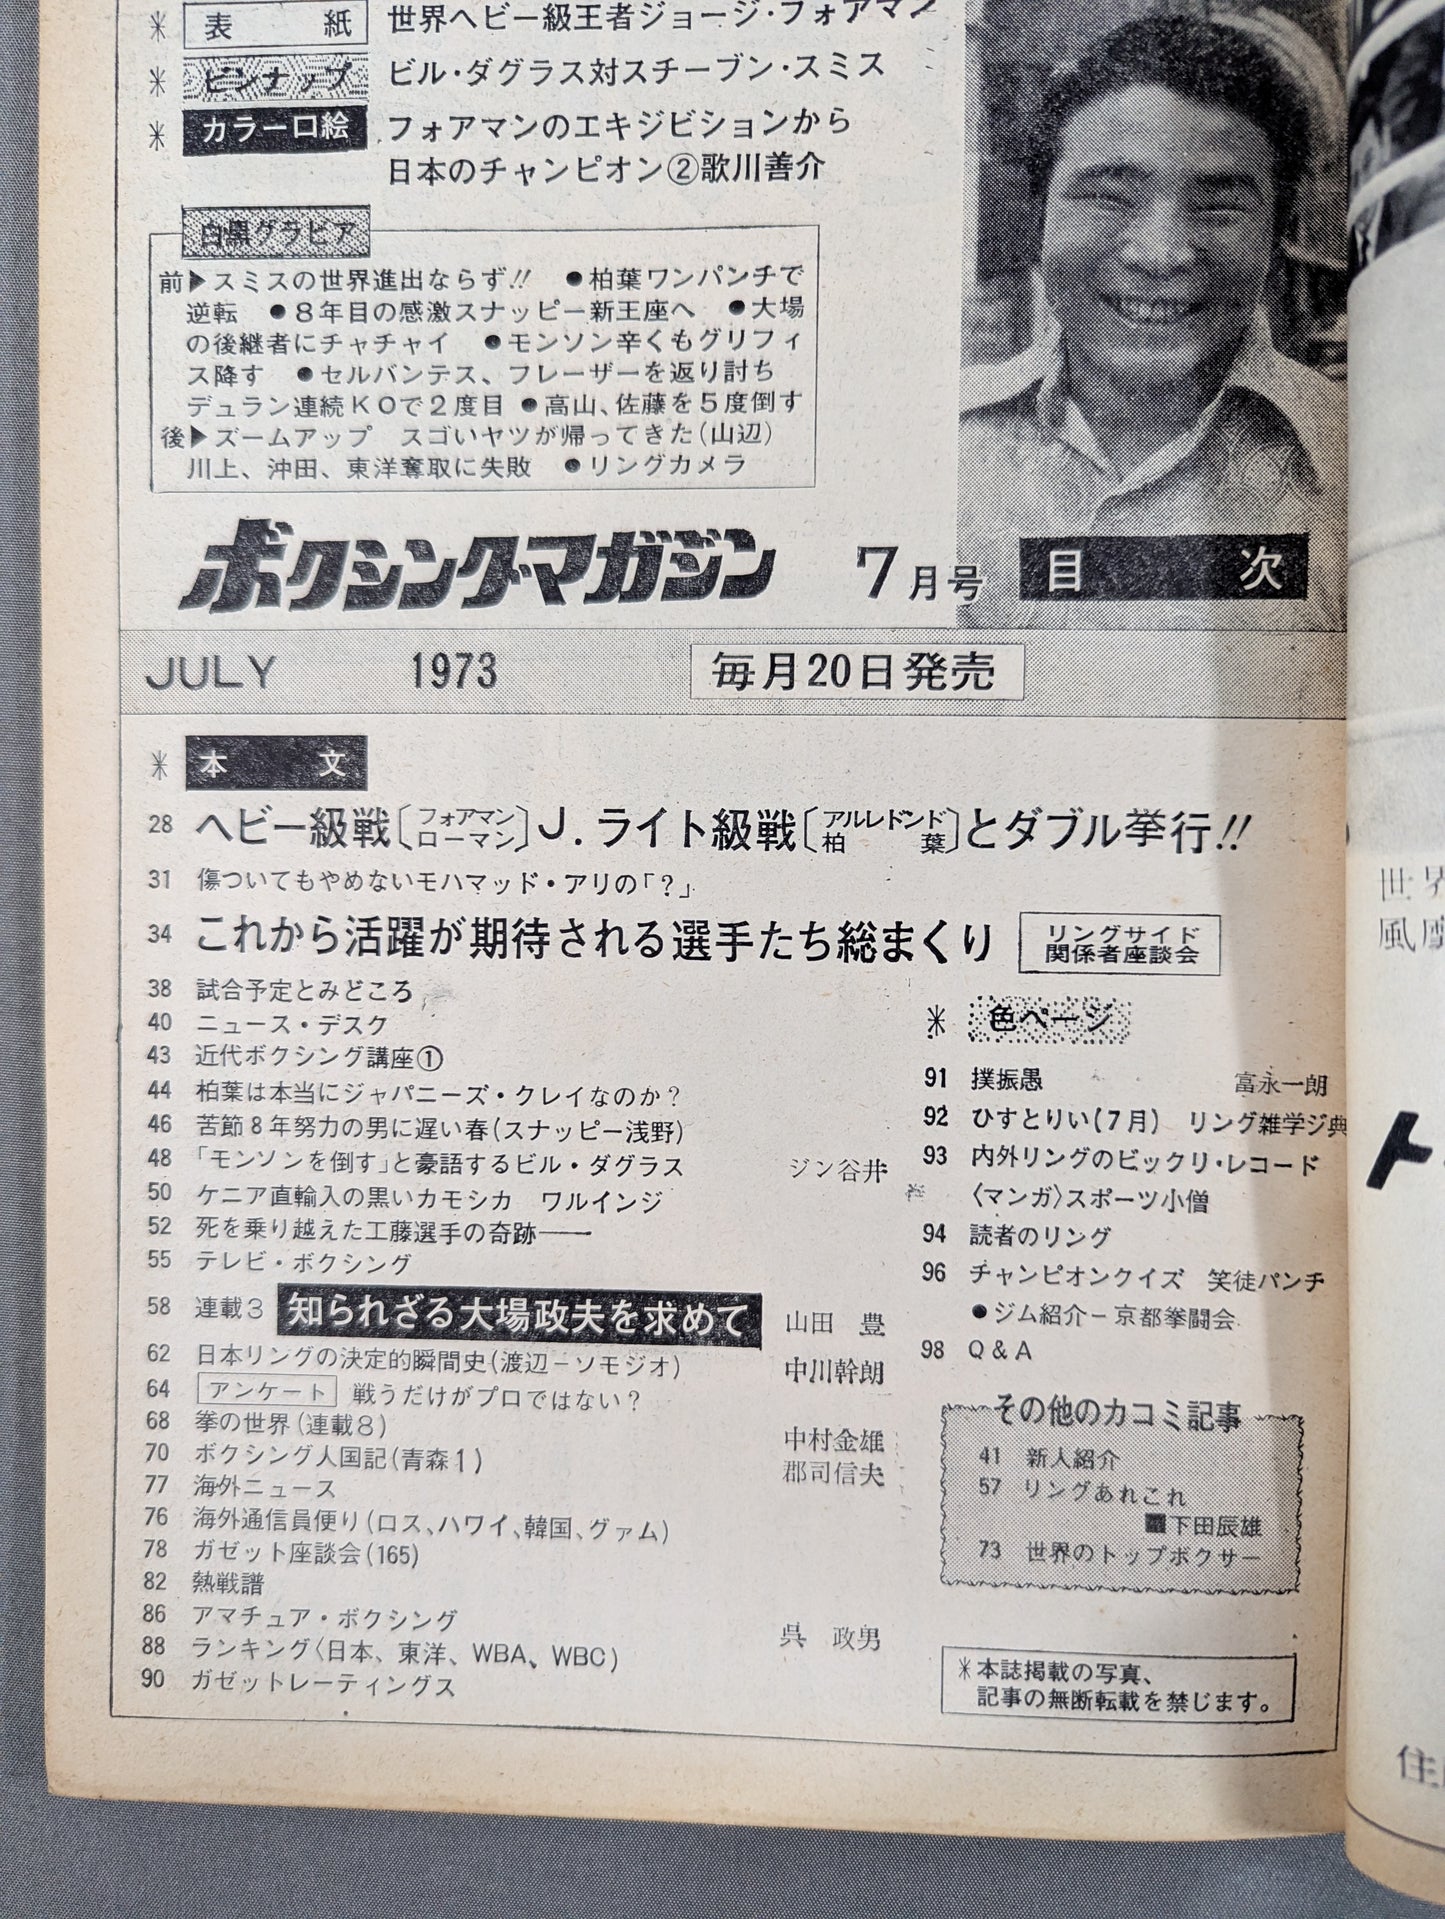 ＊ 表紙 世界ヘビー級王者ジョージ・フォアマン
＊ ピンナップ ビル・ダグラス対スチーブン・スミス
＊ カラー口絵 フォアマンのエキジビションから
日本のチャンピオン②歌川善介
白黒グラビア
前▶スミスの世界進出ならず!! ●柏葉ワンパンチで
逆転 ●8年目の感激スナッピー新王座へ ●大場
の後継者にチャチャイ ●モンソン辛くもグリフィ
ス降す ●セルバンテス、フレーザーを返り討ち
デュラン連続KOで2度目 ●高山、佐藤を5度倒す
後▶ズームアップ スゴいヤツが帰ってきた(山辺)
川上、沖田、東洋奪取に失敗 ●リングカメラ
ボクシング・マガジン 7月号 目次
JULY 1973 毎月20日発売
＊ 本文
28 ヘビー級戦〔フォアマン ローマン〕J.ライト級戦〔アルレドンド 柏葉〕とダブル挙行!!
31 傷ついてもやめないモハマッド・アリの「?」
34 これから活躍が期待される選手たち総まくり リングサイド関係者座談会
38 試合予定とみどころ
40 ニュース・デスク
43 近代ボクシング講座①
44 柏葉は本当にジャパニーズ・クレイなのか?
46 苦節8年努力の男に遅い春(スナッピー浅野)
48 「モンソンを倒す」と豪語するビル・ダグラス ジン谷井
50 ケニア直輸入の黒いカモシカ ワルインジ
52 死を乗り越えた工藤選手の奇跡――
55 テレビ・ボクシング
58 連載3 知られざる大場政夫を求めて 山田 豊
62 日本リングの決定的瞬間史(渡辺－ソモジオ) 中川幹朗
64 アンケート 戦うだけがプロではない?
68 拳の世界(連載8) 中村金雄
70 ボクシング人国記(青森1) 郡司信夫
77 海外ニュース
76 海外通信員便り(ロス、ハワイ、韓国、グァム)
78 ガゼット座談会(165)
82 熱戦譜
86 アマチュア・ボクシング 呉 政男
88 ランキング〈日本、東洋、WBA、WBC)
90 ガゼットレーティングス
＊ 色ページ
91 撲振愚 富永一朗
92 ひすとりい(7月) リング雑学ジ典
93 内外リングのビックリ・レコード
〈マンガ〉スポーツ小僧
94 読者のリング
96 チャンピオンクイズ 笑徒パンチ
●ジム紹介－京都拳闘会
98 Q&A
その他のカコミ記事
41 新人紹介
57 リングあれこれ
■下田辰雄
73 世界のトップボクサー
＊本誌掲載の写真、
記事の無断転載を禁じます。
世界
ト